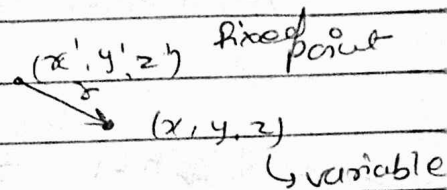 (x', y', z') fixed point
r
(x, y, z)
↳ variable